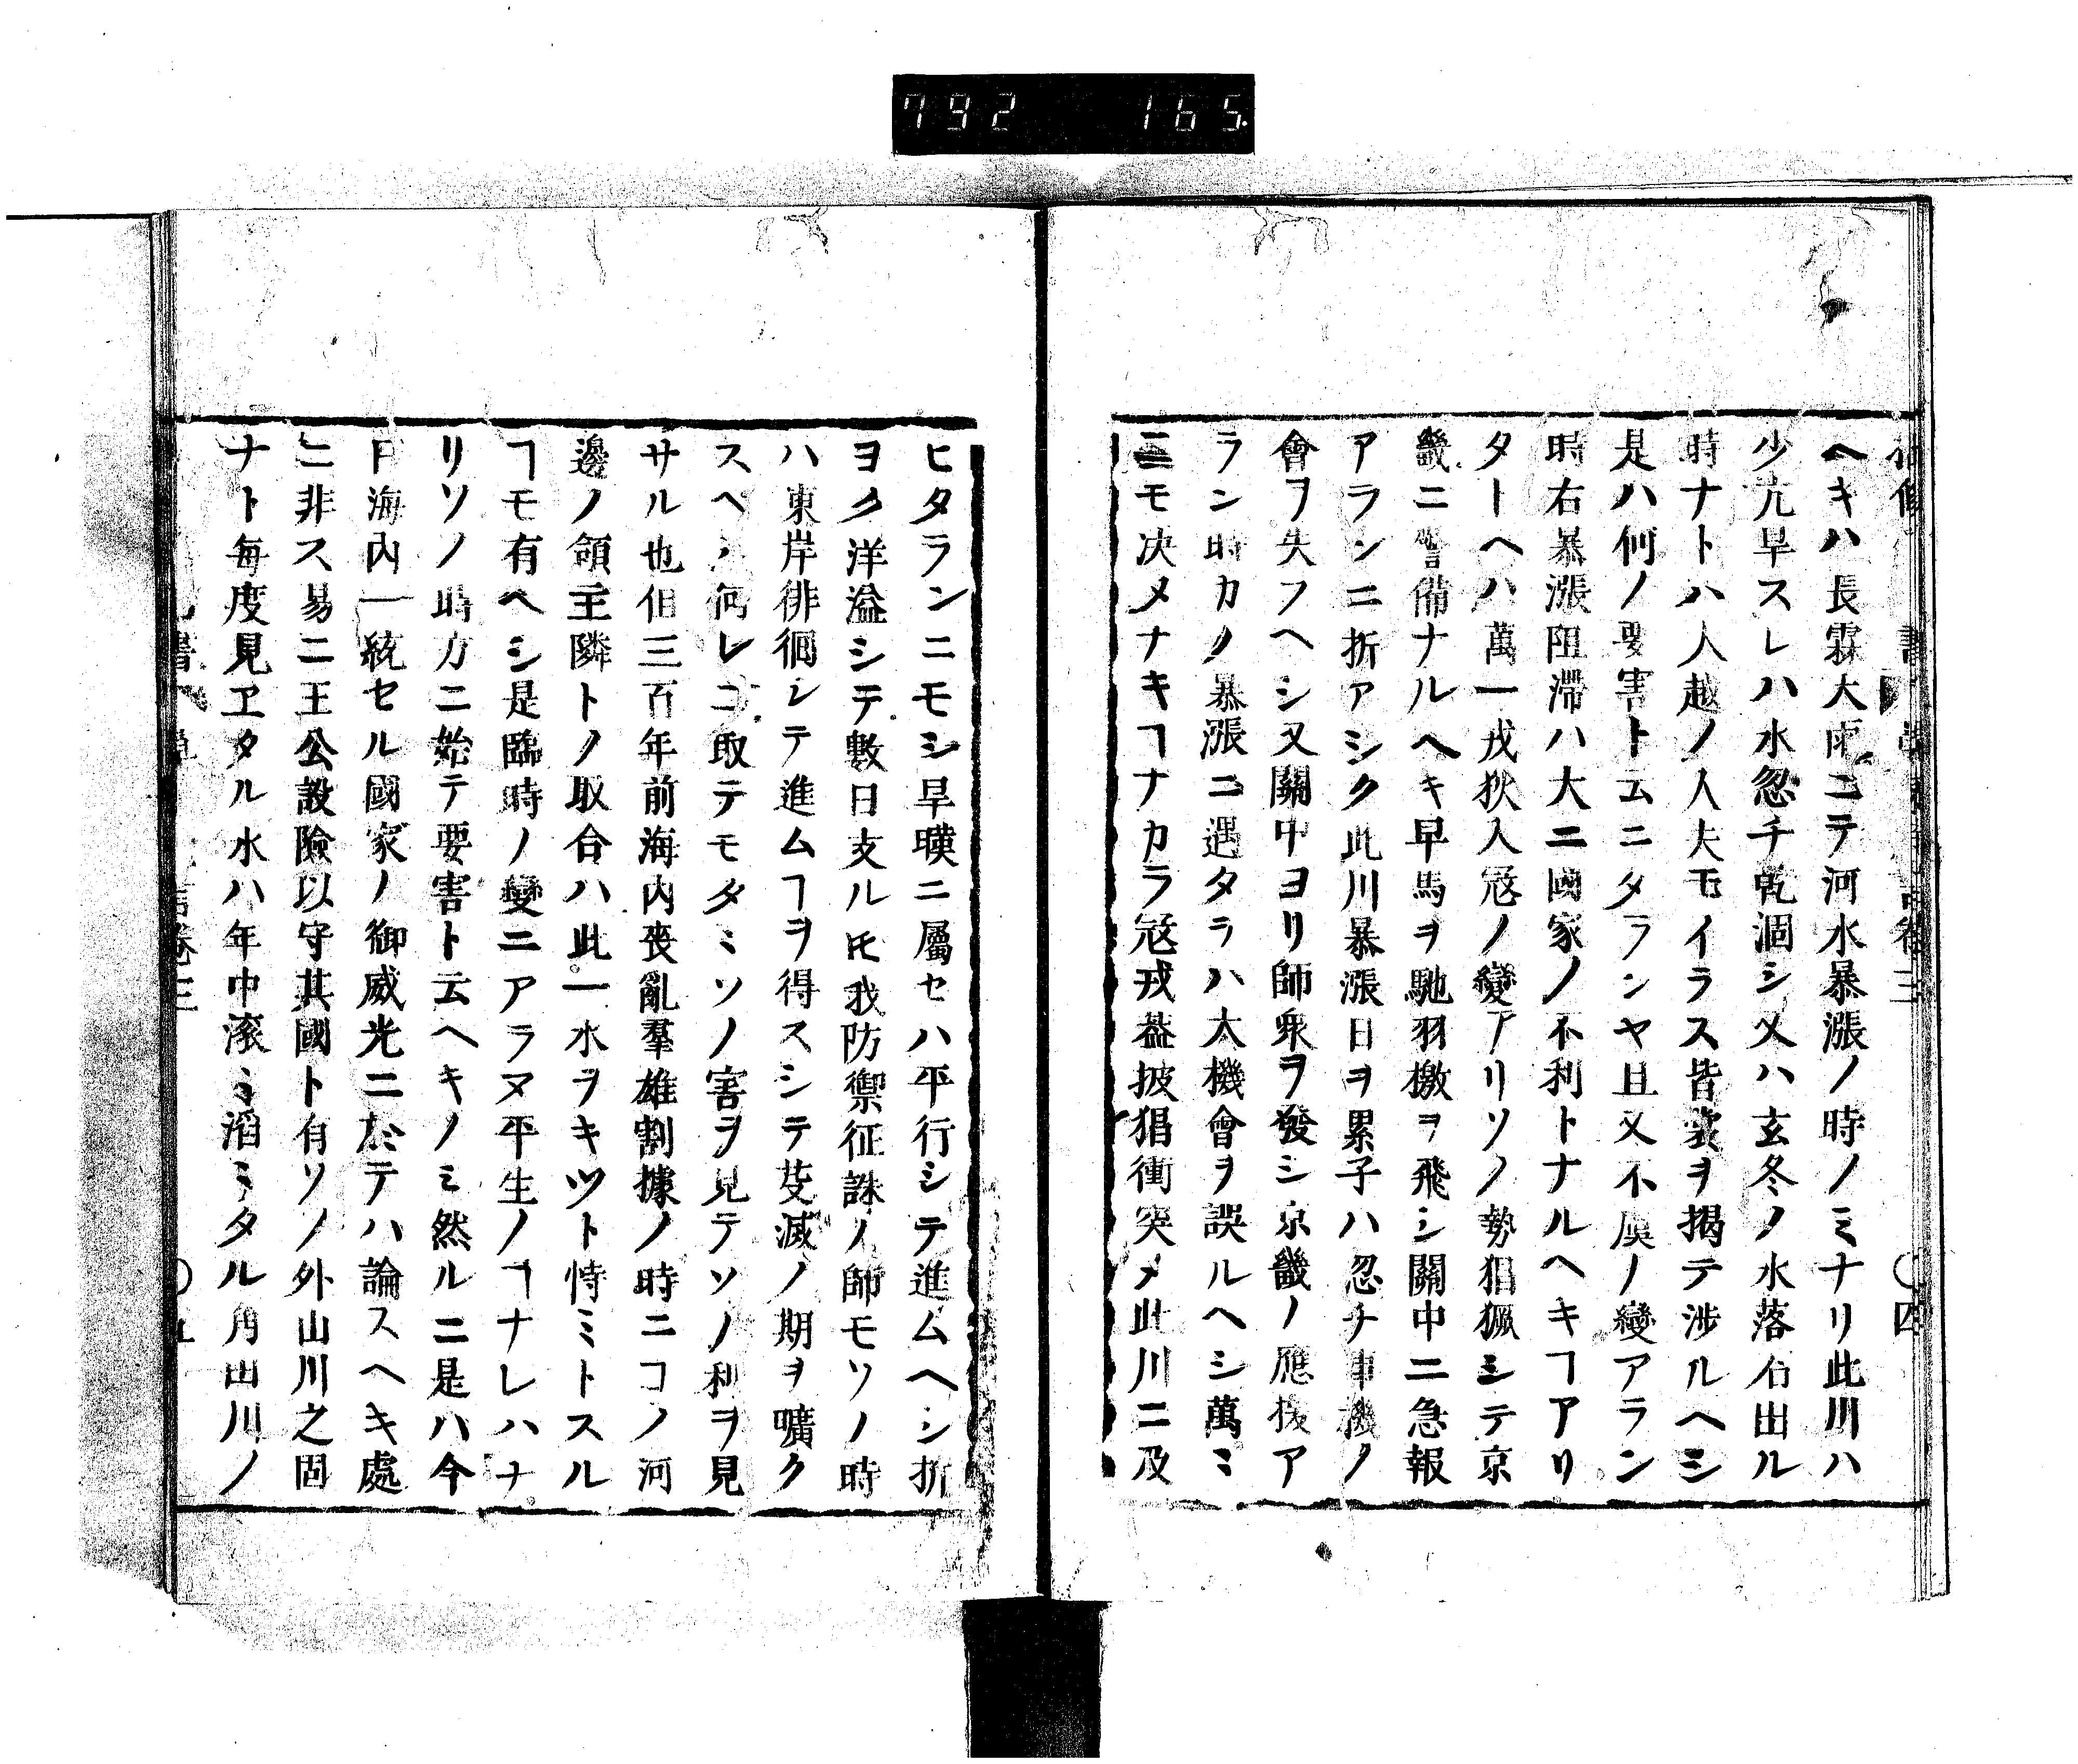 792 165
ヘキハ長霖大雨ニテ河水暴漲ノ時ノミナリ此川ハ
少亢旱スレハ水忽チ乾涸シ又ハ玄冬ノ水落石出ル
時ナトハ人越ノ人夫モイラス皆裳ヲ掲テ渉ルヘシ
是ハ何ノ要害ト云ニタランヤ且又不虞ノ變アラン
時右暴漲阻滯ハ大ニ國家ノ不利トナルヘキヿアリ
タトヘハ萬一戎狄入寇ノ變アリソノ勢猖獗ミテ京
畿ニ警備ナルヘキ早馬ヲ馳羽檄ヲ飛シ關中ニ急報
アランニ折アシク此川暴漲日ヲ累子ハ忽チ事機ノ
會ヲ失フヘシ又關中ヨリ師衆ヲ發シ京畿ノ應援ア
ラン時カノ暴漲ニ遇タラハ大機會ヲ誤ルヘシ萬ミ
ニモ决メナキヿナカラ寇戎益披猖衝突メ此川ニ及
ヒタランニモシ旱暵ニ屬セハ平行シテ進ムヘシ折
ヨク洋溢シテ數日支ル𪜈我防禦征誅ノ師モソノ時
ハ東岸徘徊シテ進ムヿヲ得スシテ芟滅ノ期ヲ曠ク
スヘシ何レニ取テモタミソノ害ヲ見テソノ利ヲ見
サル也但三百年前海内喪亂羣雄割據ノ時ニコノ河
邊ノ領主隣トノ取合ハ此一水ヲキツト恃ミトスル
ヿモ有ヘシ是臨時ノ變ニアラヌ平生ノヿナレハナ
リソノ時方ニ始テ要害ト云ヘキノミ然ルニ是ハ今
日海内一統セル國家ノ御威光ニ於テハ論スヘキ處
ニ非ス易ニ王公設險以守其國ト有ソノ外山川之固
ナト毎度見ヱタル水ハ年中滚ミ滔ミタル舟出川ノ